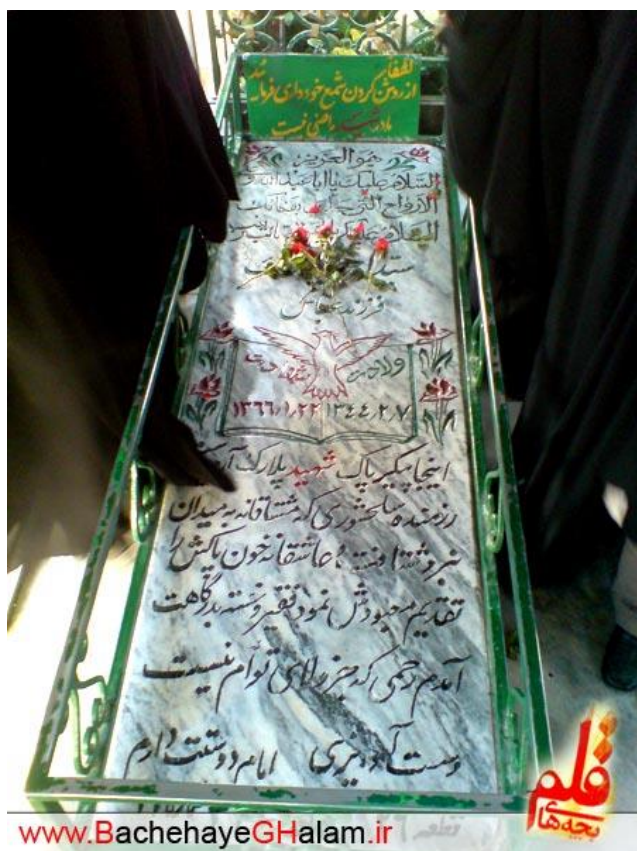 لطفاً
از روشن کردن شمع خودداری فرمائید
مادر شهید راضی نیست
هوالعزیز
السلام علیک یا اباعبدالله و
الارواح التی
السلام علیک
فرزند عباس
ولادت شهادت
۱۳۴۴،۲،۷ ۱۳۶۶،۱،۲۲
اینجا پیکر پاک شهید پلارک
رزمنده سلحشوری که مشتاقانه به میدان
نبرد شتافت و عاشقانه خون پاکش را
تقدیم معبودش نمود فقیر و خسته بدرگاهت
آمدم رحمی که جز ولای توأم نیست
دست آویزی امام دوستت دارم
قطعه
قلم
بچه های
www.BachehayeGHalam.ir